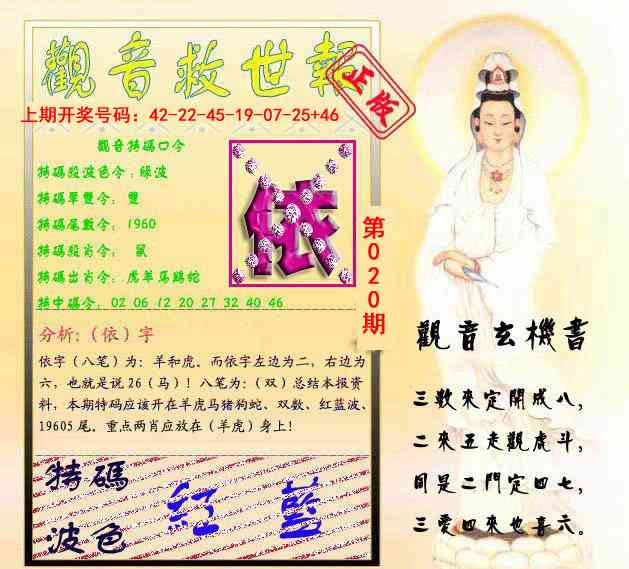 觀音救世報
正版
上期开奖号码：42-22-45-19-07-25+46
觀音特碼口令
特碼殺波色令：綠波
特碼單雙令：雙
特碼尾數令：1960
特碼殺肖令：鼠
特碼出肖令：虎羊馬鷄蛇
特中碼令：02 06 12 20 27 32 40 46
依
第020期
分析:（依）字
依字（八笔）为：羊和虎。而依字左边为二，右边为
六，也就是说26（马）！八笔为：（双）总结本报资
料，本期特码应该开在羊虎马猪狗蛇、双数、红蓝波、
19605尾。重点两肖应放在（羊虎）身上！
特碼
波色
紅 藍
觀音玄機書
三數來定開成八，
二來五走觀虎斗，
目是二門定四七，
三愛四來也喜六。